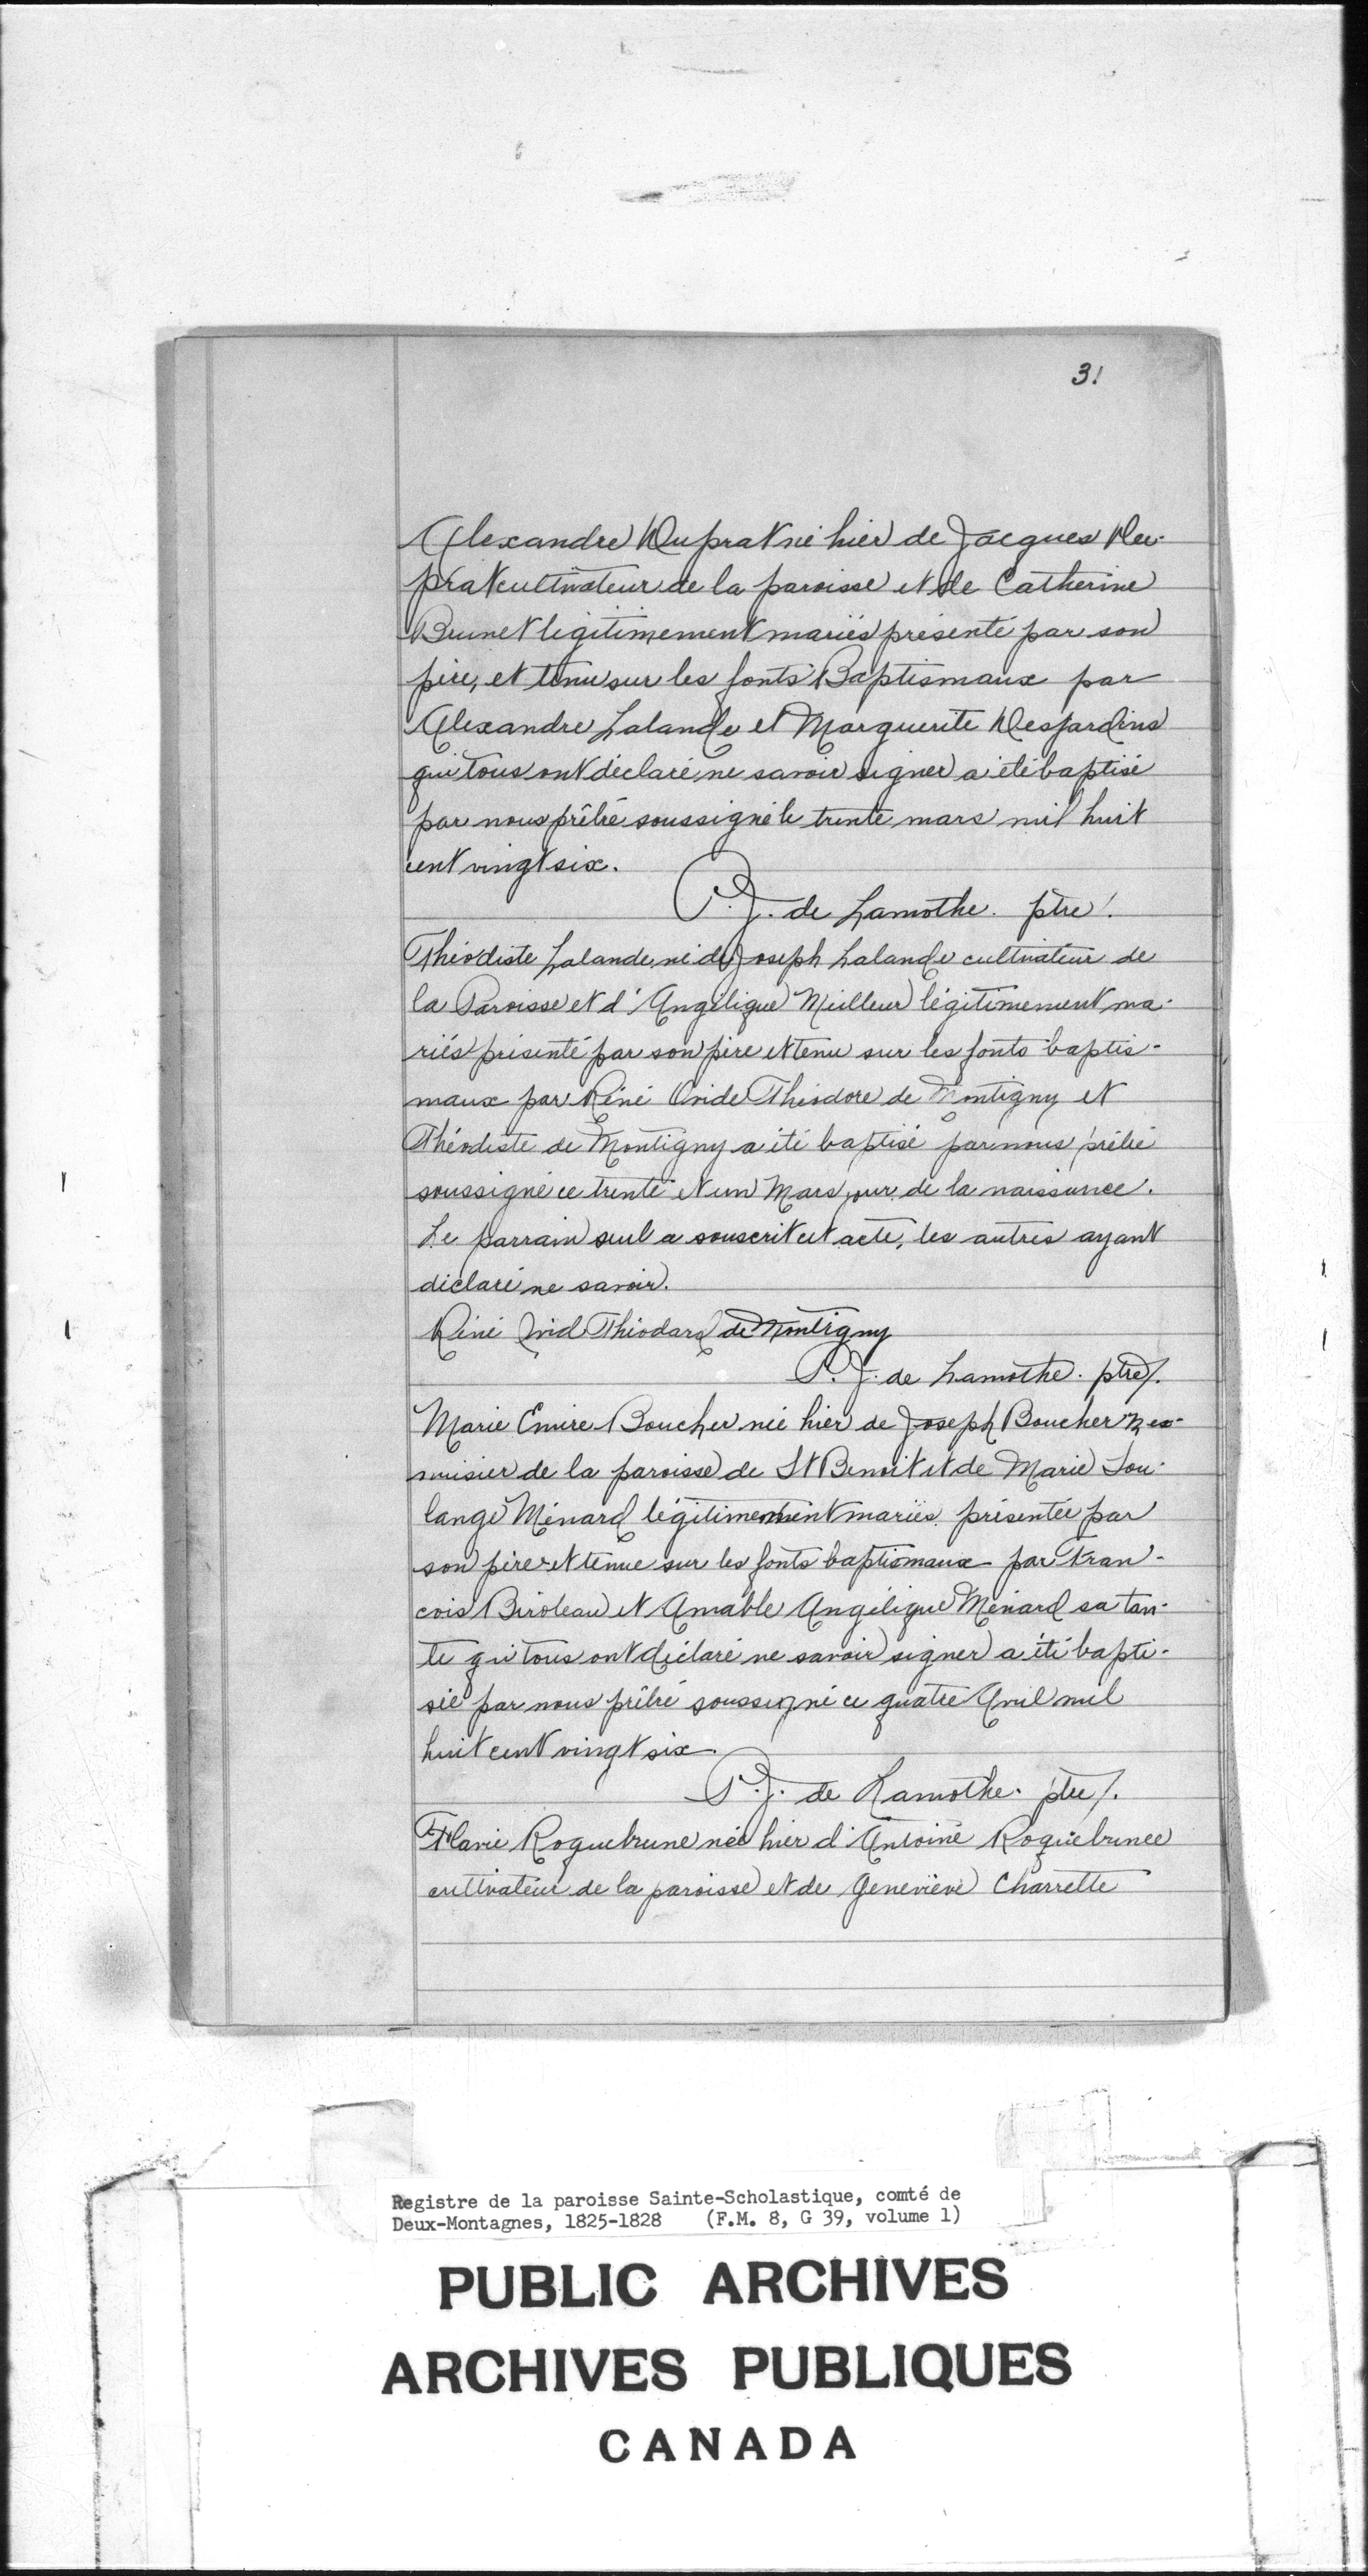 31
Alexandre Duprat né hier de Jacques Du-
prat cultivateur de la paroisse et de Catherine
Brunet légitimement mariés présenté par son
père, et tenu sur les fonts Baptismaux par
Alexandre Lalande et Marguerite Desjardins
qui tous ont déclaré ne savoir signer a été baptisé
par nous prêtre soussigné le trente mars mil huit
cent vingt six.
P. J. de Lamothe. ptre.
Théodiste Lalande né de Joseph Lalande cultivateur de
la Paroisse et d'Angélique Meilleur légitimement ma-
riés présenté par son père et tenu sur les fonts baptis-
maux par Réné Ovide Théodore de Montigny et
Théodiste de Montigny a été baptisé par nous prêtre
soussigné ce trente et un Mars jour de la naissance.
Le parrain seul a souscrit cet acte, les autres ayant
déclaré ne savoir.
Réné Ovid Théodard de Montigny
P. J. de Lamothe. ptre/.
Marie Emire Boucher née hier de Joseph Boucher Me-
nuisier de la paroisse de St Benoit et de Marie Sou-
lange Ménard légitimement mariés présentée par
son père et tenue sur les fonts baptismaux par Fran-
cois Biroleau et Amable Angélique Ménard sa tan-
te qui tous ont déclaré ne savoir signer a été bapti-
sée par nous prêtre soussigné ce quatre Avril mil
huit cent vingt six.
P. J. de Lamothe. ptre/.
Flavie Roquebrune née hier d'Antoine Roquebrune
cultivateur de la paroisse et de Geneviève Charrette
Registre de la paroisse Sainte-Scholastique, comté de
Deux-Montagnes, 1825-1828 (F.M. 8, G 39, volume 1)
PUBLIC ARCHIVES
ARCHIVES PUBLIQUES
CANADA